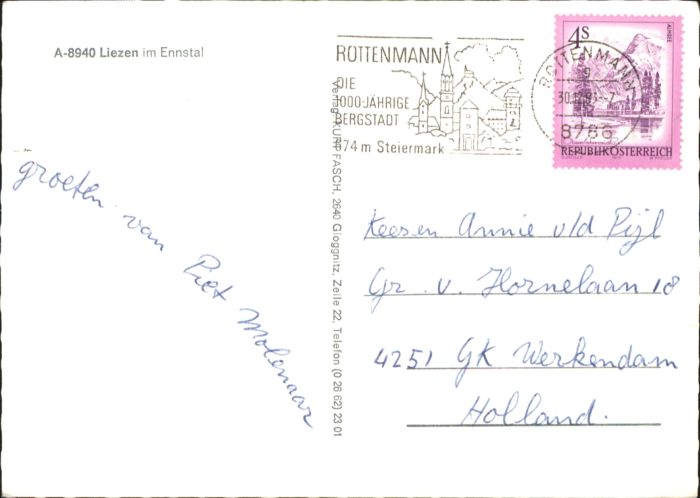 A-8940 Liezen im Ennstal
ROTTENMANN
DIE
1000-JÄHRIGE
BERGSTADT
674 m Steiermark
4S
ALMSEE
REPUBLIK ÖSTERREICH
ROTTENMANN
8786
groeten van Piet Molenaar
Verlag KURT FASCH, 2640 Gloggnitz, Zeile 22, Telefon (0 26 62) 23 01
Kees en Annie v/d Pijl
Gr. v. Hornelaan 18
4251 GK Werkendam
Holland.